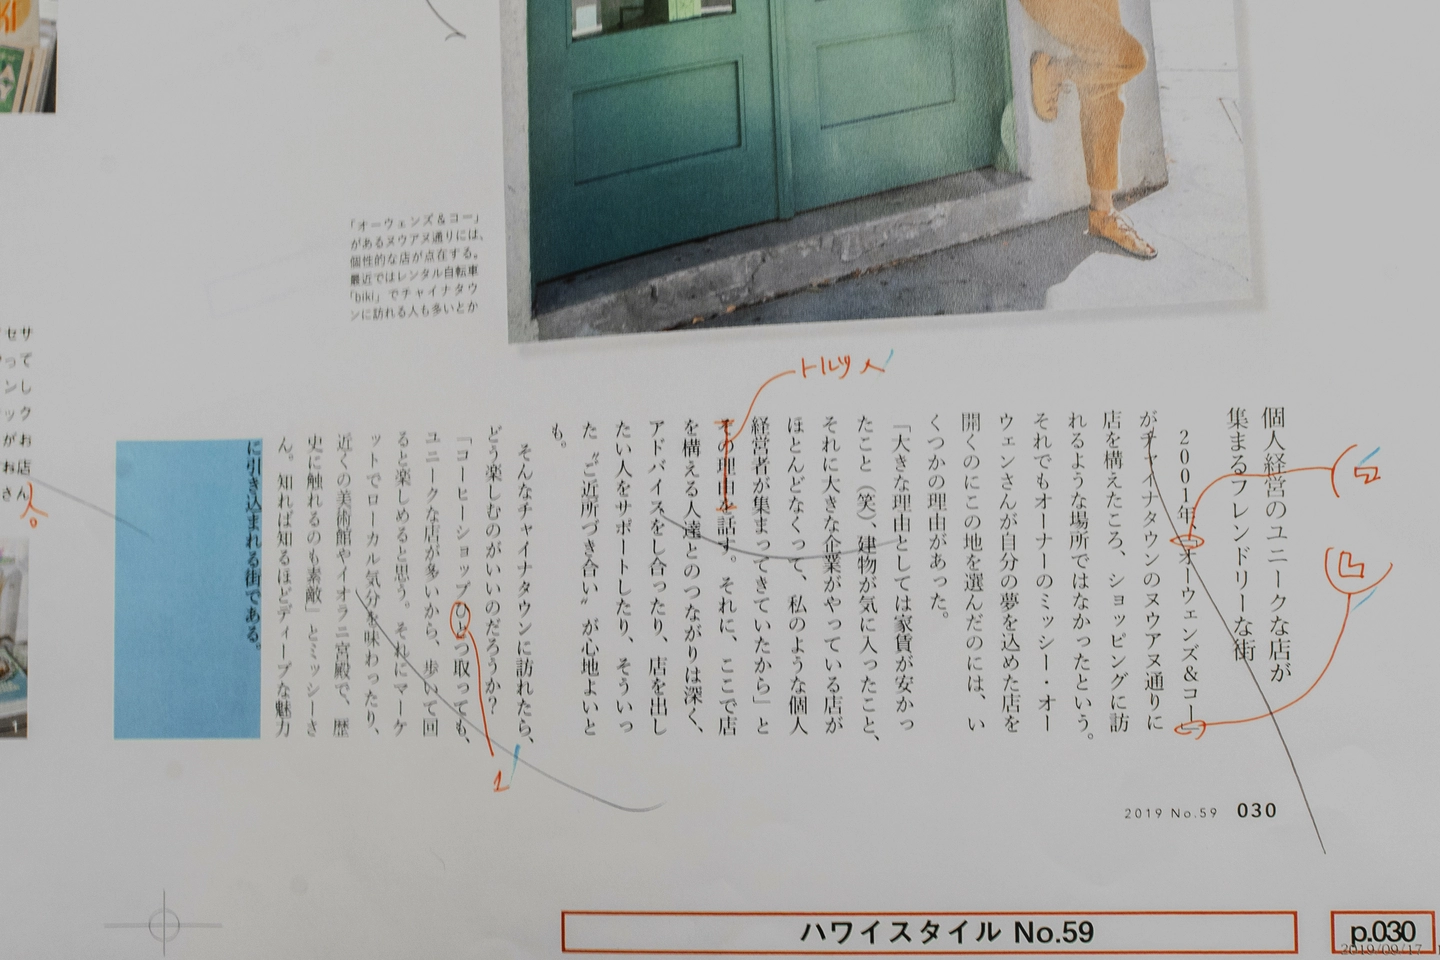 「オーウェンズ＆コー」
があるヌウアヌ通りには、
個性的な店が点在する。
最近ではレンタル自転車
「biki」でチャイナタウ
ンに訪れる人も多いとか
トルツメ
個人経営のユニークな店が
集まるフレンドリーな街
2001年、オーウェンズ＆コー
がチャイナタウンのヌウアヌ通りに
店を構えたころ、ショッピングに訪
れるような場所ではなかったという。
それでもオーナーのミッシー・オー
ウェンさんが自分の夢を込めた店を
開くのにこの地を選んだのには、い
くつかの理由があった。
「大きな理由としては家賃が安かっ
たこと（笑）、建物が気に入ったこと、
それに大きな企業がやっている店が
ほとんどなくって、私のような個人
経営者が集まってきていたから」と
その理由を話す。それに、ここで店
を構える人達とのつながりは深く、
アドバイスをし合ったり、店を出し
たい人をサポートしたり、そういっ
た〝ご近所づき合い〟が心地よいと
も。
そんなチャイナタウンに訪れたら、
どう楽しむのがいいのだろうか？
「コーヒーショップひとつ取っても、
ユニークな店が多いから、歩いて回
ると楽しめると思う。それにマーケ
ットでローカル気分を味わったり、
近くの美術館やイオラニ宮殿で、歴
史に触れるのも素敵」とミッシーさ
ん。知れば知るほどディープな魅力
に引き込まれる街である。
セサ
って
ンし
ック
がお
お店
さん
人。
1
2019 No.59 030
ハワイスタイル No.59
p.030
2019/09/17